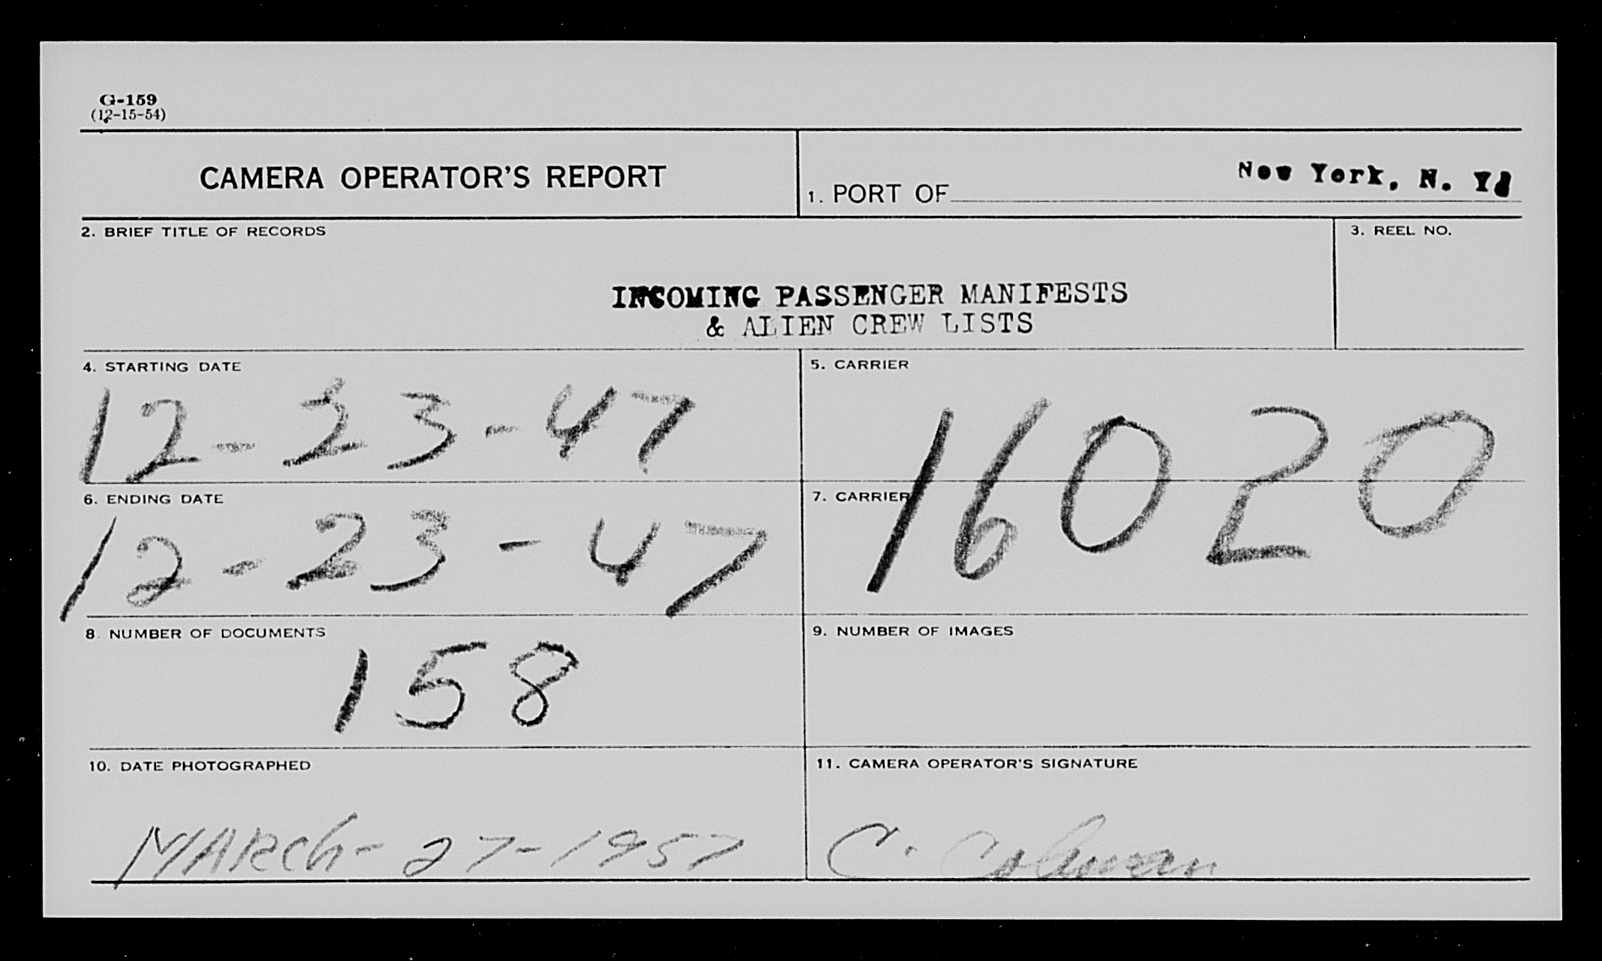 G-159
(12-15-54)
CAMERA OPERATOR'S REPORT
1. PORT OF New York, N. Y.
2. BRIEF TITLE OF RECORDS
3. REEL NO.
INCOMING PASSENGER MANIFESTS
& ALIEN CREW LISTS
4. STARTING DATE
12-23-47
5. CARRIER
16020
6. ENDING DATE
12-23-47
7. CARRIER
8. NUMBER OF DOCUMENTS
158
9. NUMBER OF IMAGES
10. DATE PHOTOGRAPHED
MARch-27-1957
11. CAMERA OPERATOR'S SIGNATURE
C.